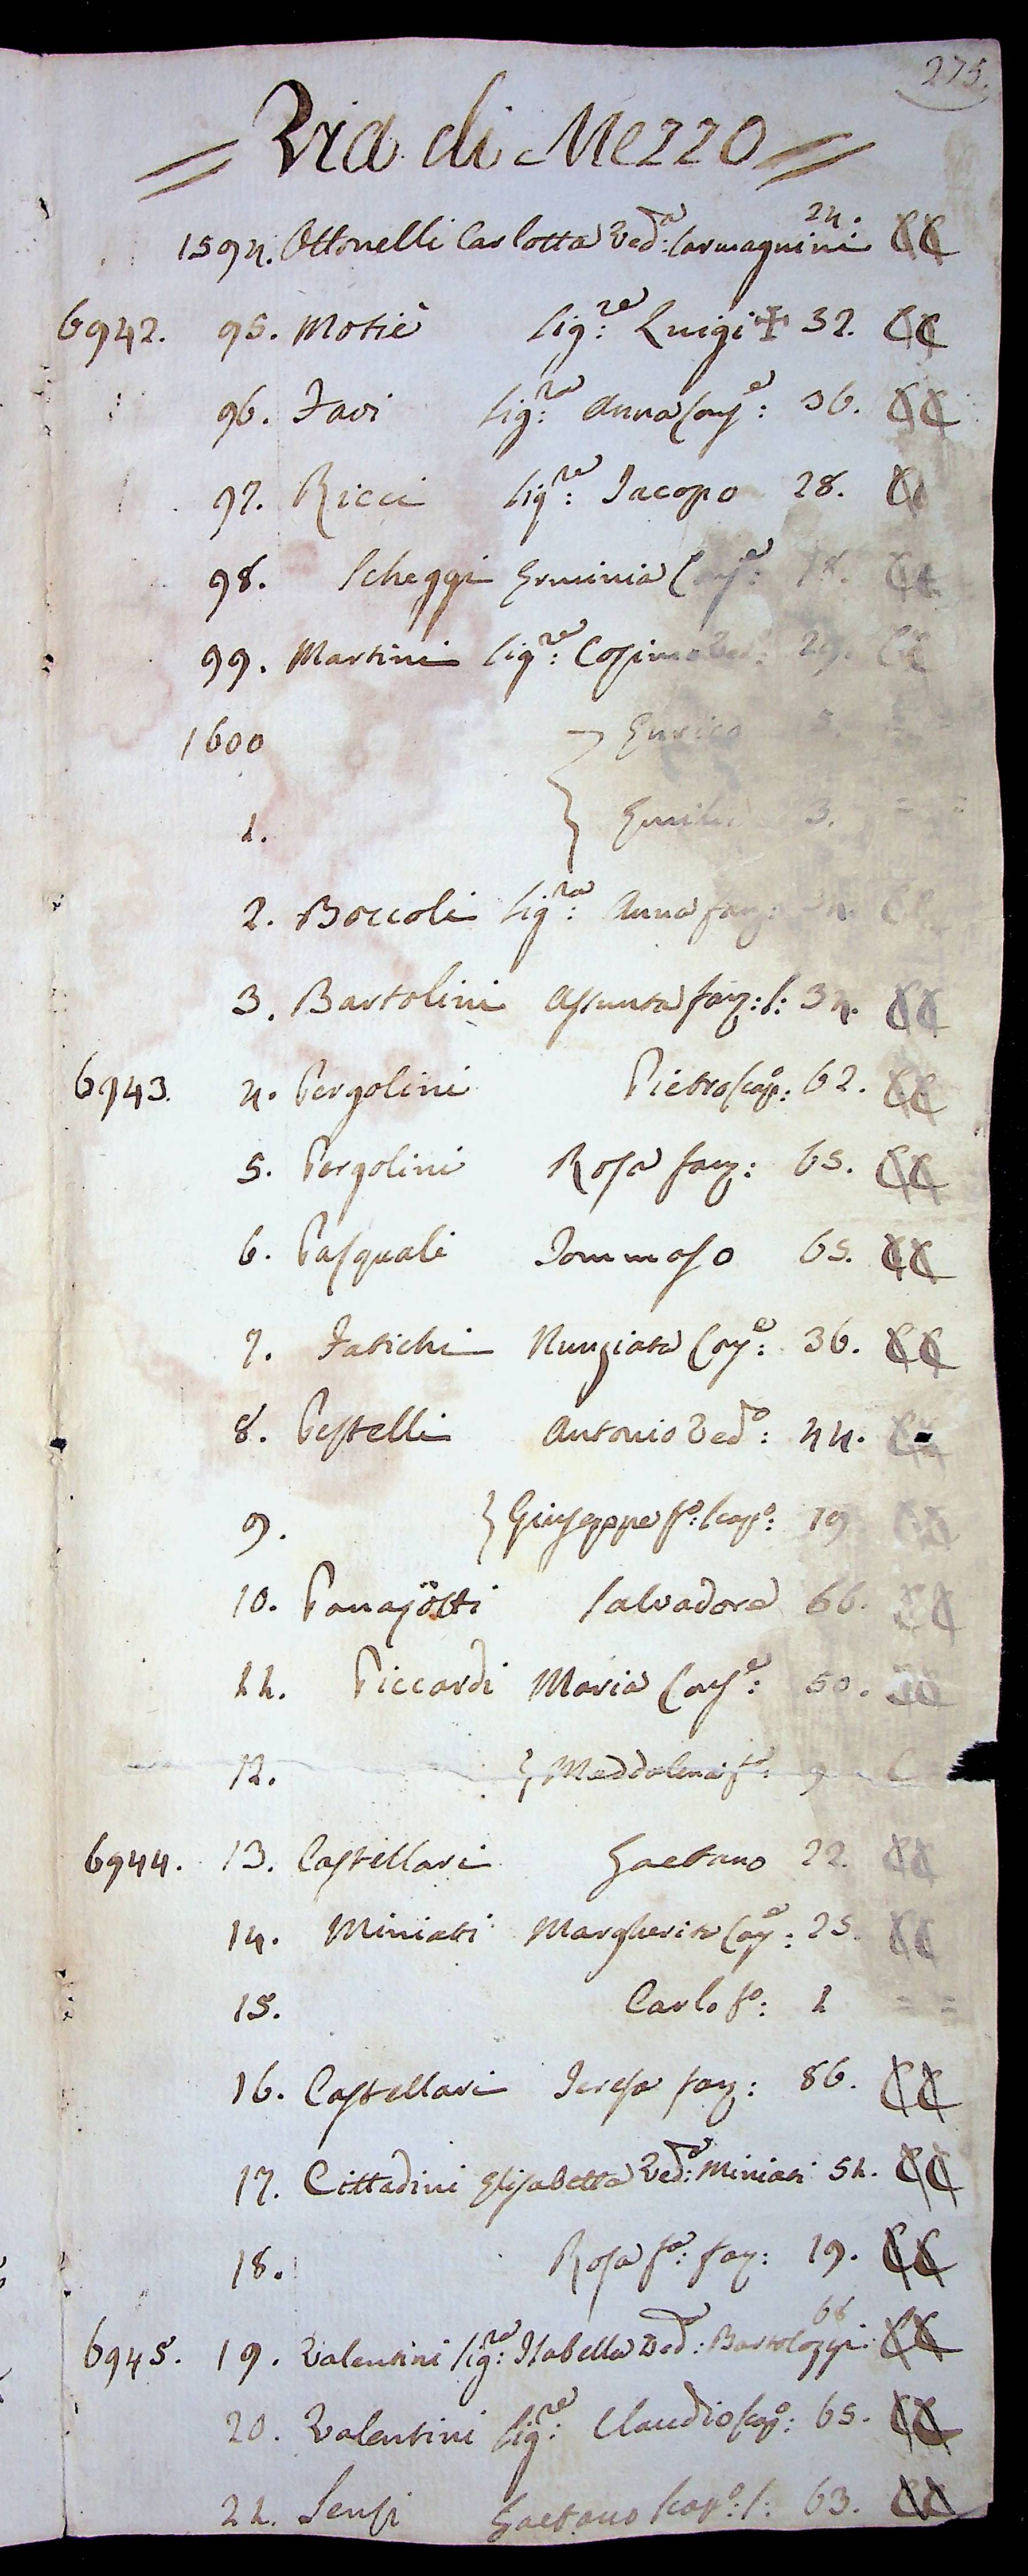 275.
= Via di Mezzo =
1594. Ottonelli Carlotta Ved:a Carmagnini 24. CC
6942. 95. Motiè Sig:re Luigi ✠ 32. CC
96. Favi Sig:ra Anna Cong:e 36. CC
97. Ricci Sig:re Jacopo 28. CC
98. Scheggi Erminia Cong:e CC
99. Martini Sig:re Cosimo Ved: 29. CC
1600 Enrico 5. = =
1. Emilio 3. = =
2. Boccoli Sig:ra Anna fanz: CC
3. Bartolini Assunta fanz: S: 34. CC
6943. 4. Pergolini Pietro Scap:o 62. CC
5. Pergolini Rosa fanz: 65. CC
6. Pasquali Tommaso 65. CC
7. Fatichi Nunziata Con:e 36. CC
8. Pestelli Antonio Ved:o 44. CC
9. } Giuseppe f:o Scap:o 19 CC
10. Panajötti Salvadore 66. CC
11. Piccardi Maria Con:e 50. CC
12. } Maddalena f:a 9 C
6944. 13. Castellari Gaetano 22. CC
14. Miniati Margherita Con:e 25. CC
15. Carlo f:o 1 = =
16. Castellari Teresa fanz: 86. CC
17. Cittadini Elisabetta Ved:a Miniati 51. CC
18. Rosa f:a fanz: 19. CC
6945. 19. Valentini Sig:ra Isabella Ved:a Bartolozzi 68 CC
20. Valentini Sig:re Claudio Scap:o 65. CC
21. Sensi Gaetano Scap:o S: 63. CC